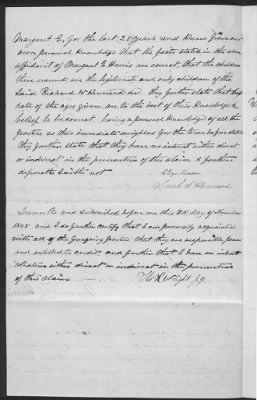 Margaret E, for the last 28 years and know from our
own personal knowledge that the facts stated in the above
affidavit of Margaret E are correct, that the children
therein named are the legitimate and only children of the
said Richard W they further state that the
date of the ages given are to the best of their knowledge &
belief to be correct having a personal knowledge of all the
parties as their immediate neighbors for the time before stated
they further state that they have no interest either direct
or indirect in the prosecution of this claim & further
deponents saith not
Sarah
Sworn to and subscribed before me this 20 day of
and I do further certify that I am personally acquainted
with all of the foregoing parties that they are respectable persons
and entitled to credit, and further that I have no interest
whatever either direct or indirect in the prosecution
of this claim
Wright J.P.